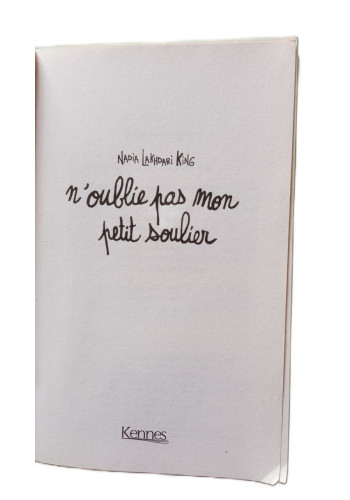 Nadia Lakhdari King
n'oublie pas mon
petit soulier
Kennes